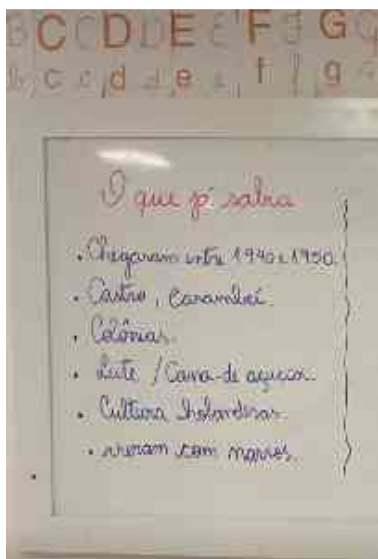 C D E F G
c d e f g
O que já sabia
• Chegaram entre 1940 e 1950.
• Castro, Carambeí.
• Colônias.
• Leite / Cana-de açucar.
• Cultura holandesas.
• vieram com navios.